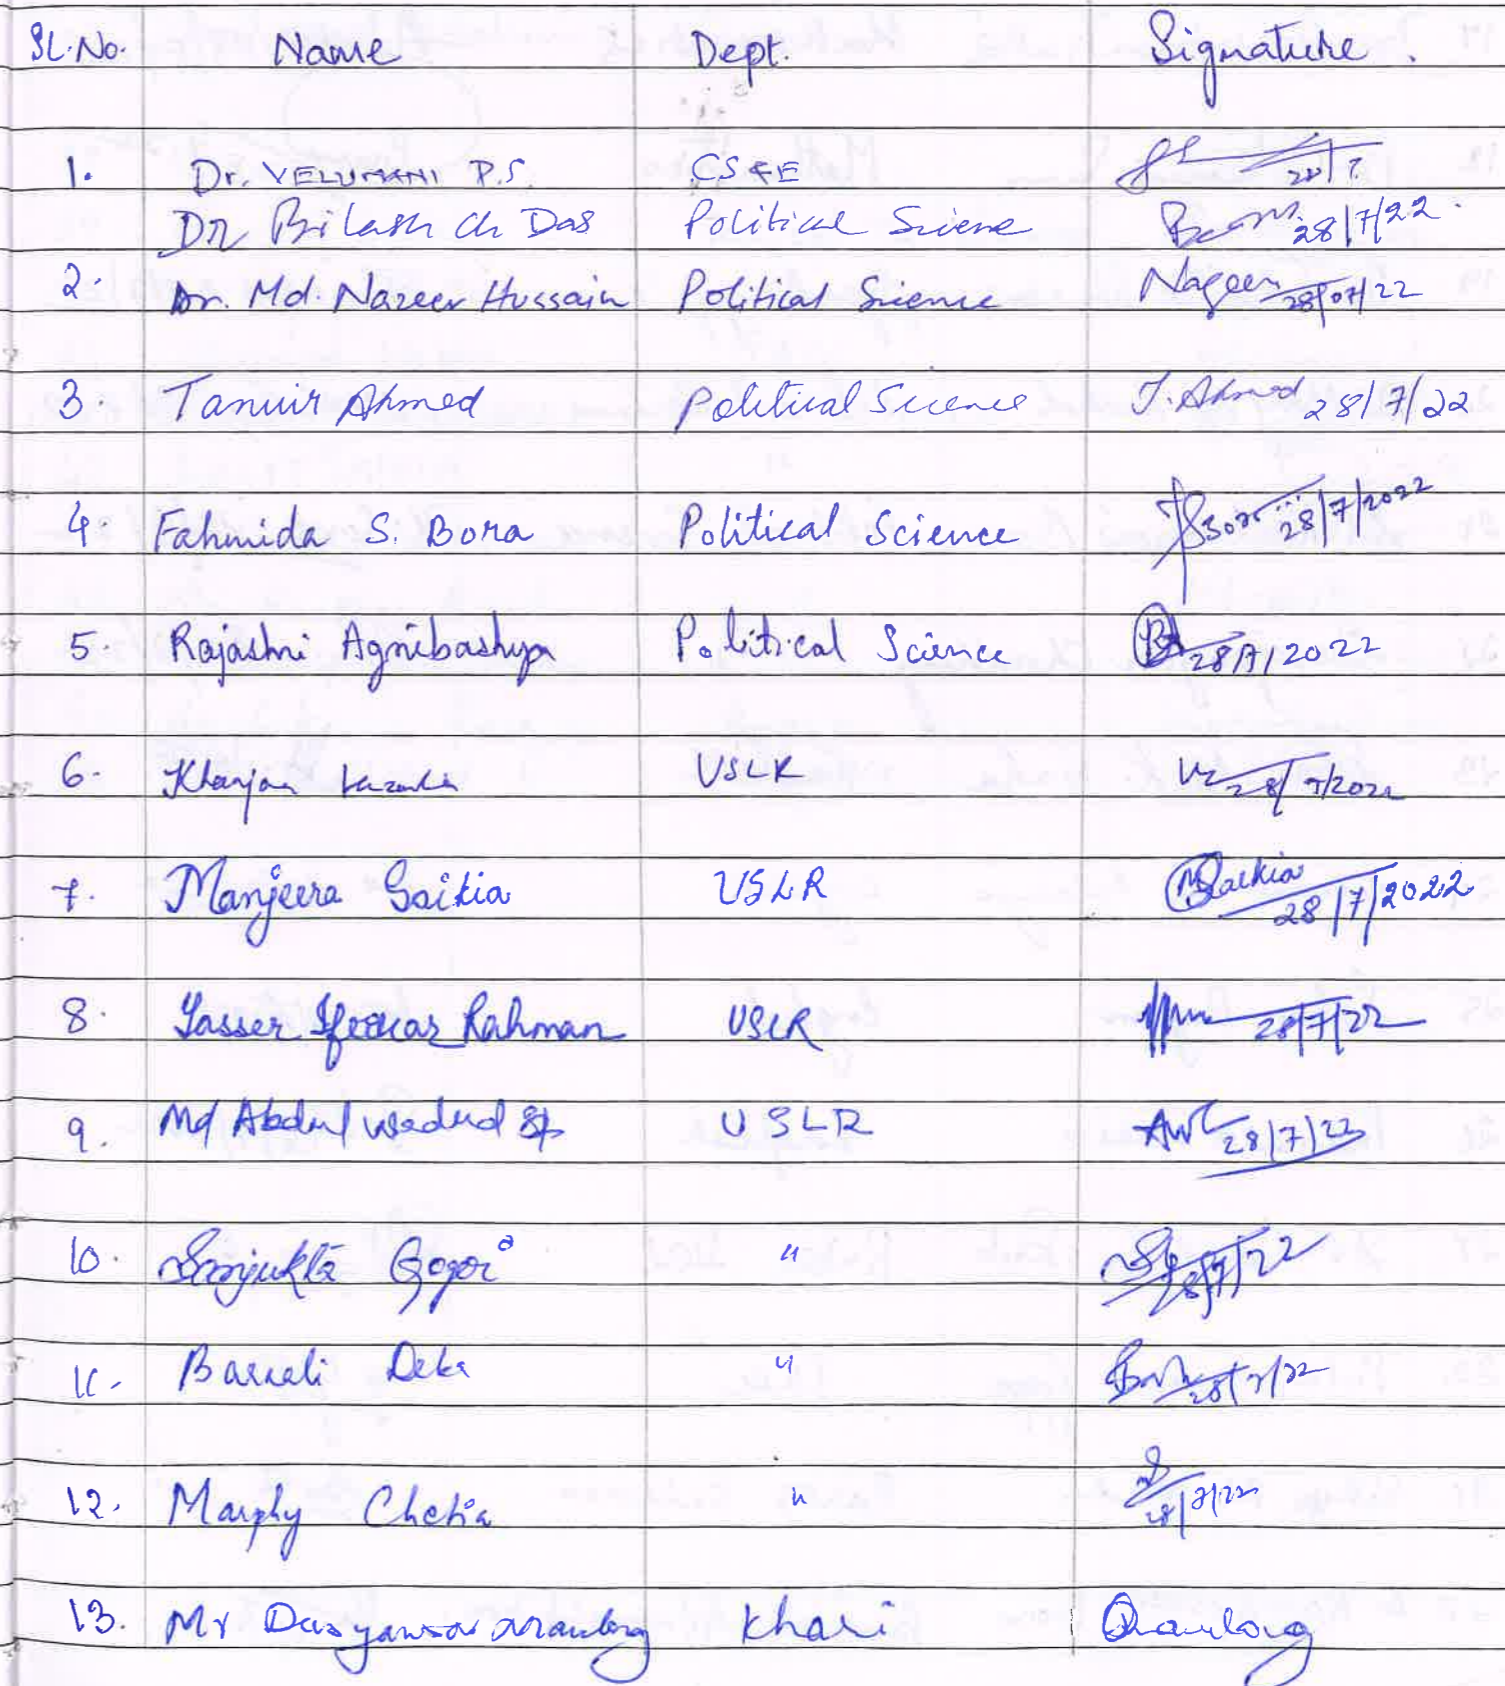 SL.No. Name Dept. Signature.
1. Dr. VELUMANI P.S. CS&E 28/7
Dr Bilash Ch Das Political Sciene 28/7/22.
2. Dr. Md. Nazeer Hussain Political Science Nazeer 28/07/22
3. Tanvir Ahmed Political Science T. Ahmed 28/7/22
4. Fahmida S. Bora Political Science Bora 28/7/2022
5. Rajashri Agnibashya Political Science 28/7/2022
6. USLR 28/7/2022
7. Manjeera Saikia USLR MSaikia 28/7/2022
8. Yasser Rahman USLR 28/7/22
9. Md Abdul Wadud USLR 28/7/22
10. Sanjukta Gogoi " 28/7/22
11. Deka " 28/7/22
12. Marphy Chetia " 28/7/22
13. Mr Khasi